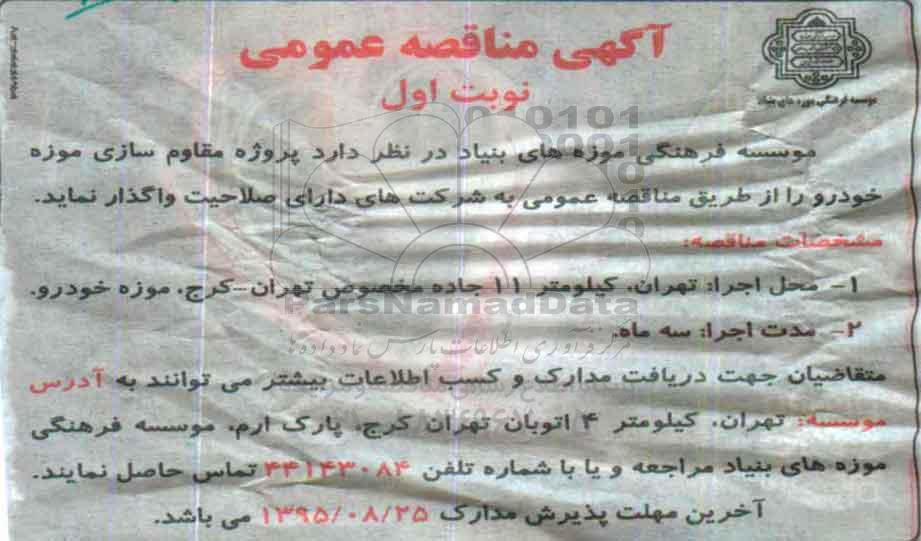 آگهی مناقصه عمومی
نوبت اول
موسسه فرهنگی موزه های بنیاد
موسسه فرهنگی موزه های بنیاد در نظر دارد پروژه مقاوم سازی موزه
خودرو را از طریق مناقصه عمومی به شرکت های دارای صلاحیت واگذار نماید.
مشخصات مناقصه:
۱- محل اجرا: تهران، کیلومتر ۱۱ جاده مخصوص تهران-کرج، موزه خودرو.
ParsNamadData
۲- مدت اجرا: سه ماه.
مرکز فرآوری اطلاعات پارس نماد داده ها
متقاضیان جهت دریافت مدارک و کسب اطلاعات بیشتر می توانند به آدرس
موسسه: تهران، کیلومتر ۴ اتوبان تهران کرج، پارک ارم، موسسه فرهنگی
موزه های بنیاد مراجعه و یا با شماره تلفن ۴۴۱۴۳۰۸۴ تماس حاصل نمایند.
آخرین مهلت پذیرش مدارک ۱۳۹۵/۰۸/۲۵ می باشد.